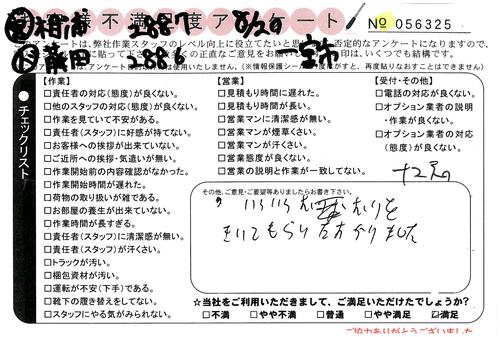 お客様不満足度アンケート
相浦 2887 8/20
№ 056325
このアンケートは、弊社作業スタッフのレベル向上に役立てたいと思
否定的なアンケートになりますので、
藤田 2886
いくつでも結構です。
チェックリスト
【作業】
□責任者の対応(態度)が良くない。
□他のスタッフの対応(態度)が良くない。
□作業を見ていて不安がある。
□責任者(スタッフ)に好感が持てない。
□お客様への挨拶が出来ていない。
□ご近所への挨拶・気遣いが無い。
□作業開始前の内容確認がなかった。
□作業開始時間が遅れた。
□荷物の取り扱いが雑である。
□お部屋の養生が出来ていない。
□作業時間が長すぎる。
□責任者(スタッフ)に清潔感が無い。
□責任者(スタッフ)が汗くさい。
□トラックが汚い。
□梱包資材が汚い。
□運転が不安(下手)である。
□靴下の履き替えをしてない。
□スタッフにやる気がみられない。
【営業】
□見積もり時間に遅れた。
□見積時間が長い。
□営業マンに清潔感が無い。
□営業マンが煙草くさい。
□営業マンが汗くさい。
□営業態度が良くない。
□営業の説明と作業が一致してない。
【受付・その他】
□電話の対応が良くない。
□オプション業者の説明
・作業が良くない。
□オプション業者の対応
(態度)が良くない。
その他、ご意見・ご要望等ありましたらお書き下さい。
きいてもらり たすかりました
☆当社をご利用いただきまして、ご満足いただけたでしょうか?
□不満 □やや不満 □普通 □やや満足 ☑満足
ご協力ありがとうございました